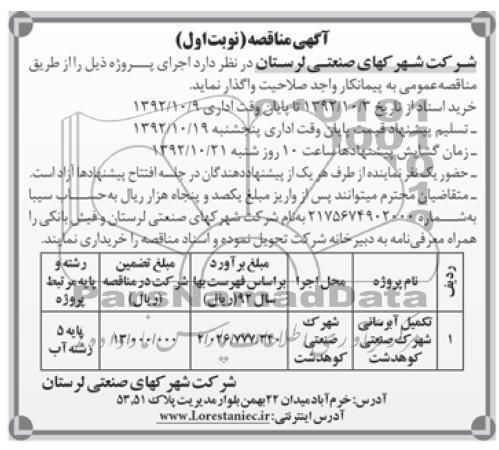 آگهی مناقصه (نوبت اول)
شرکت شهرکهای صنعتی لرستان در نظر دارد اجرای پروژه ذیل را از طریق
مناقصه عمومی به پیمانکار واجد صلاحیت واگذار نماید.
خرید اسناد از تاریخ ۱۳۹۲/۱۰/۳ تا پایان وقت اداری ۱۳۹۲/۱۰/۹
ـ تسلیم پیشنهاد قیمت پایان وقت اداری پنجشنبه ۱۳۹۲/۱۰/۱۹
ـ زمان گشایش پیشنهادها ساعت ۱۰ روز شنبه ۱۳۹۲/۱۰/۲۱
ـ حضور یک نفر نماینده از طرف هر یک از پیشنهاددهندگان در جلسه افتتاح پیشنهادها آزاد است.
ـ متقاضیان محترم میتوانند پس از واریز مبلغ یکصد و پنجاه هزار ریال به حساب سیبا
به شماره ۲۱۷۵۶۷۴۹۰۲۰۰۰ به نام شرکت شهرکهای صنعتی لرستان و فیش بانکی را
همراه معرفی‌نامه به دبیرخانه شرکت تحویل نموده و اسناد مناقصه را خریداری نمایند.
ردیف | نام پروژه | محل اجرا | مبلغ برآورد براساس فهرست بها سال ۹۲ (ریال) | مبلغ تضمین شرکت در مناقصه (ریال) | رشته و پایه مرتبط پروژه
۱ | تکمیل آبرسانی شهرک صنعتی کوهدشت | شهرک صنعتی کوهدشت | ۲/۰۲۶/۷۷۷/۳۴۰ | ۱۳/۰۰۰/۰۰۰ | پایه ۵ رشته آب
شرکت شهرکهای صنعتی لرستان
آدرس: خرم‌آباد میدان ۲۲بهمن بلوار مدیریت پلاک ۵۳،۵۱
آدرس اینترنتی: www.Lorestaniec.ir
ParsNamadData